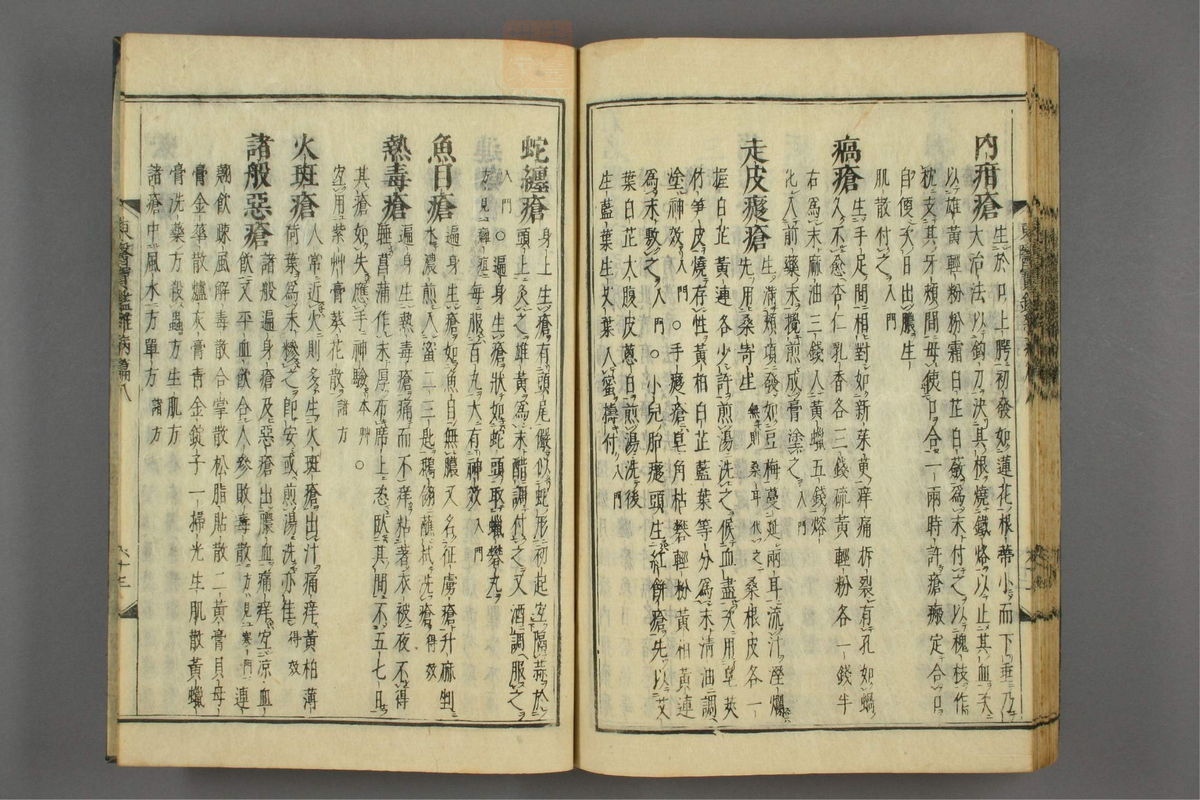 內疳瘡 生於口上腭初發如蓮花根蒂小而下垂乃
大治法以鉤刀決其根燒鐵烙以止其血次
以雄黃輕粉粉霜白芷白蘞爲末付之以槐枝作
枕支其牙頰間毋使口合一兩時許瘡瘢定合口
自便次日出膿生
肌散付之入門
瘑瘡 生手足間相對如新茱萸痒痛折裂有孔如蝸
久不愈杏仁乳香各三錢硫黃輕粉各一錢半
右爲末麻油三錢入黃蠟五錢熔
化入前藥末攪煎成膏塗之入門
走皮瘊瘡 生滿頰項發如豆梅蔓延兩耳流汁溼爛
先用桑寄生無則桑耳代之桑根皮各一
握白芷黃連各少許煎湯洗之候血盡次用皂莢
竹笋皮燒存性黃柏白芷藍葉等分爲末清油調
塗神效入門○手瘊瘡皂角枯礬輕粉黃柏黃連
爲末敷之入門○小兒胎瘊頭生紅餅瘡先以艾
葉白芷大腹皮葱白煎湯洗後
生藍葉生艾葉入蜜擣付入門
蛇纏瘡 身上生瘡有頭尾儼似蛇形初起宜隔蒜於
頭上灸之雄黃爲末醋調付之又酒調服之
入門○遍身生瘡狀如蛇頭取蠟礬丸
方見癰疽每服百丸大有神效入門
魚目瘡 遍身生瘡如魚目無膿又名征虜瘡升麻剉
水濃煎入蜜二三匙鵝翎蘸拭洗瘡得效
熱毒瘡 遍身生熱毒瘡痛而不痒粘著衣被夜不得
睡菖蒲作末厚布席上恣臥其間不五七日
其瘡如失應手神驗本艸○
宜用紫艸膏葵花散諸方
火斑瘡 人常近火則多生火斑瘡出汁痛痒黃柏薄
荷葉爲末糝之卽安或煎湯洗亦佳得效
諸般惡瘡 諸般遍身瘡及惡瘡出膿血痛痒宜凉血
飮又平血飮合人參敗毒散方見寒門連
翹飮疎風解毒散合掌散松脂貼散二黃膏貝母
膏金華散爐灰膏靑金錠子一掃光生肌散黃蠟
膏洗藥方殺蟲方生肌方
諸瘡中風水方單方諸方
東醫寶鑑雜病篇八